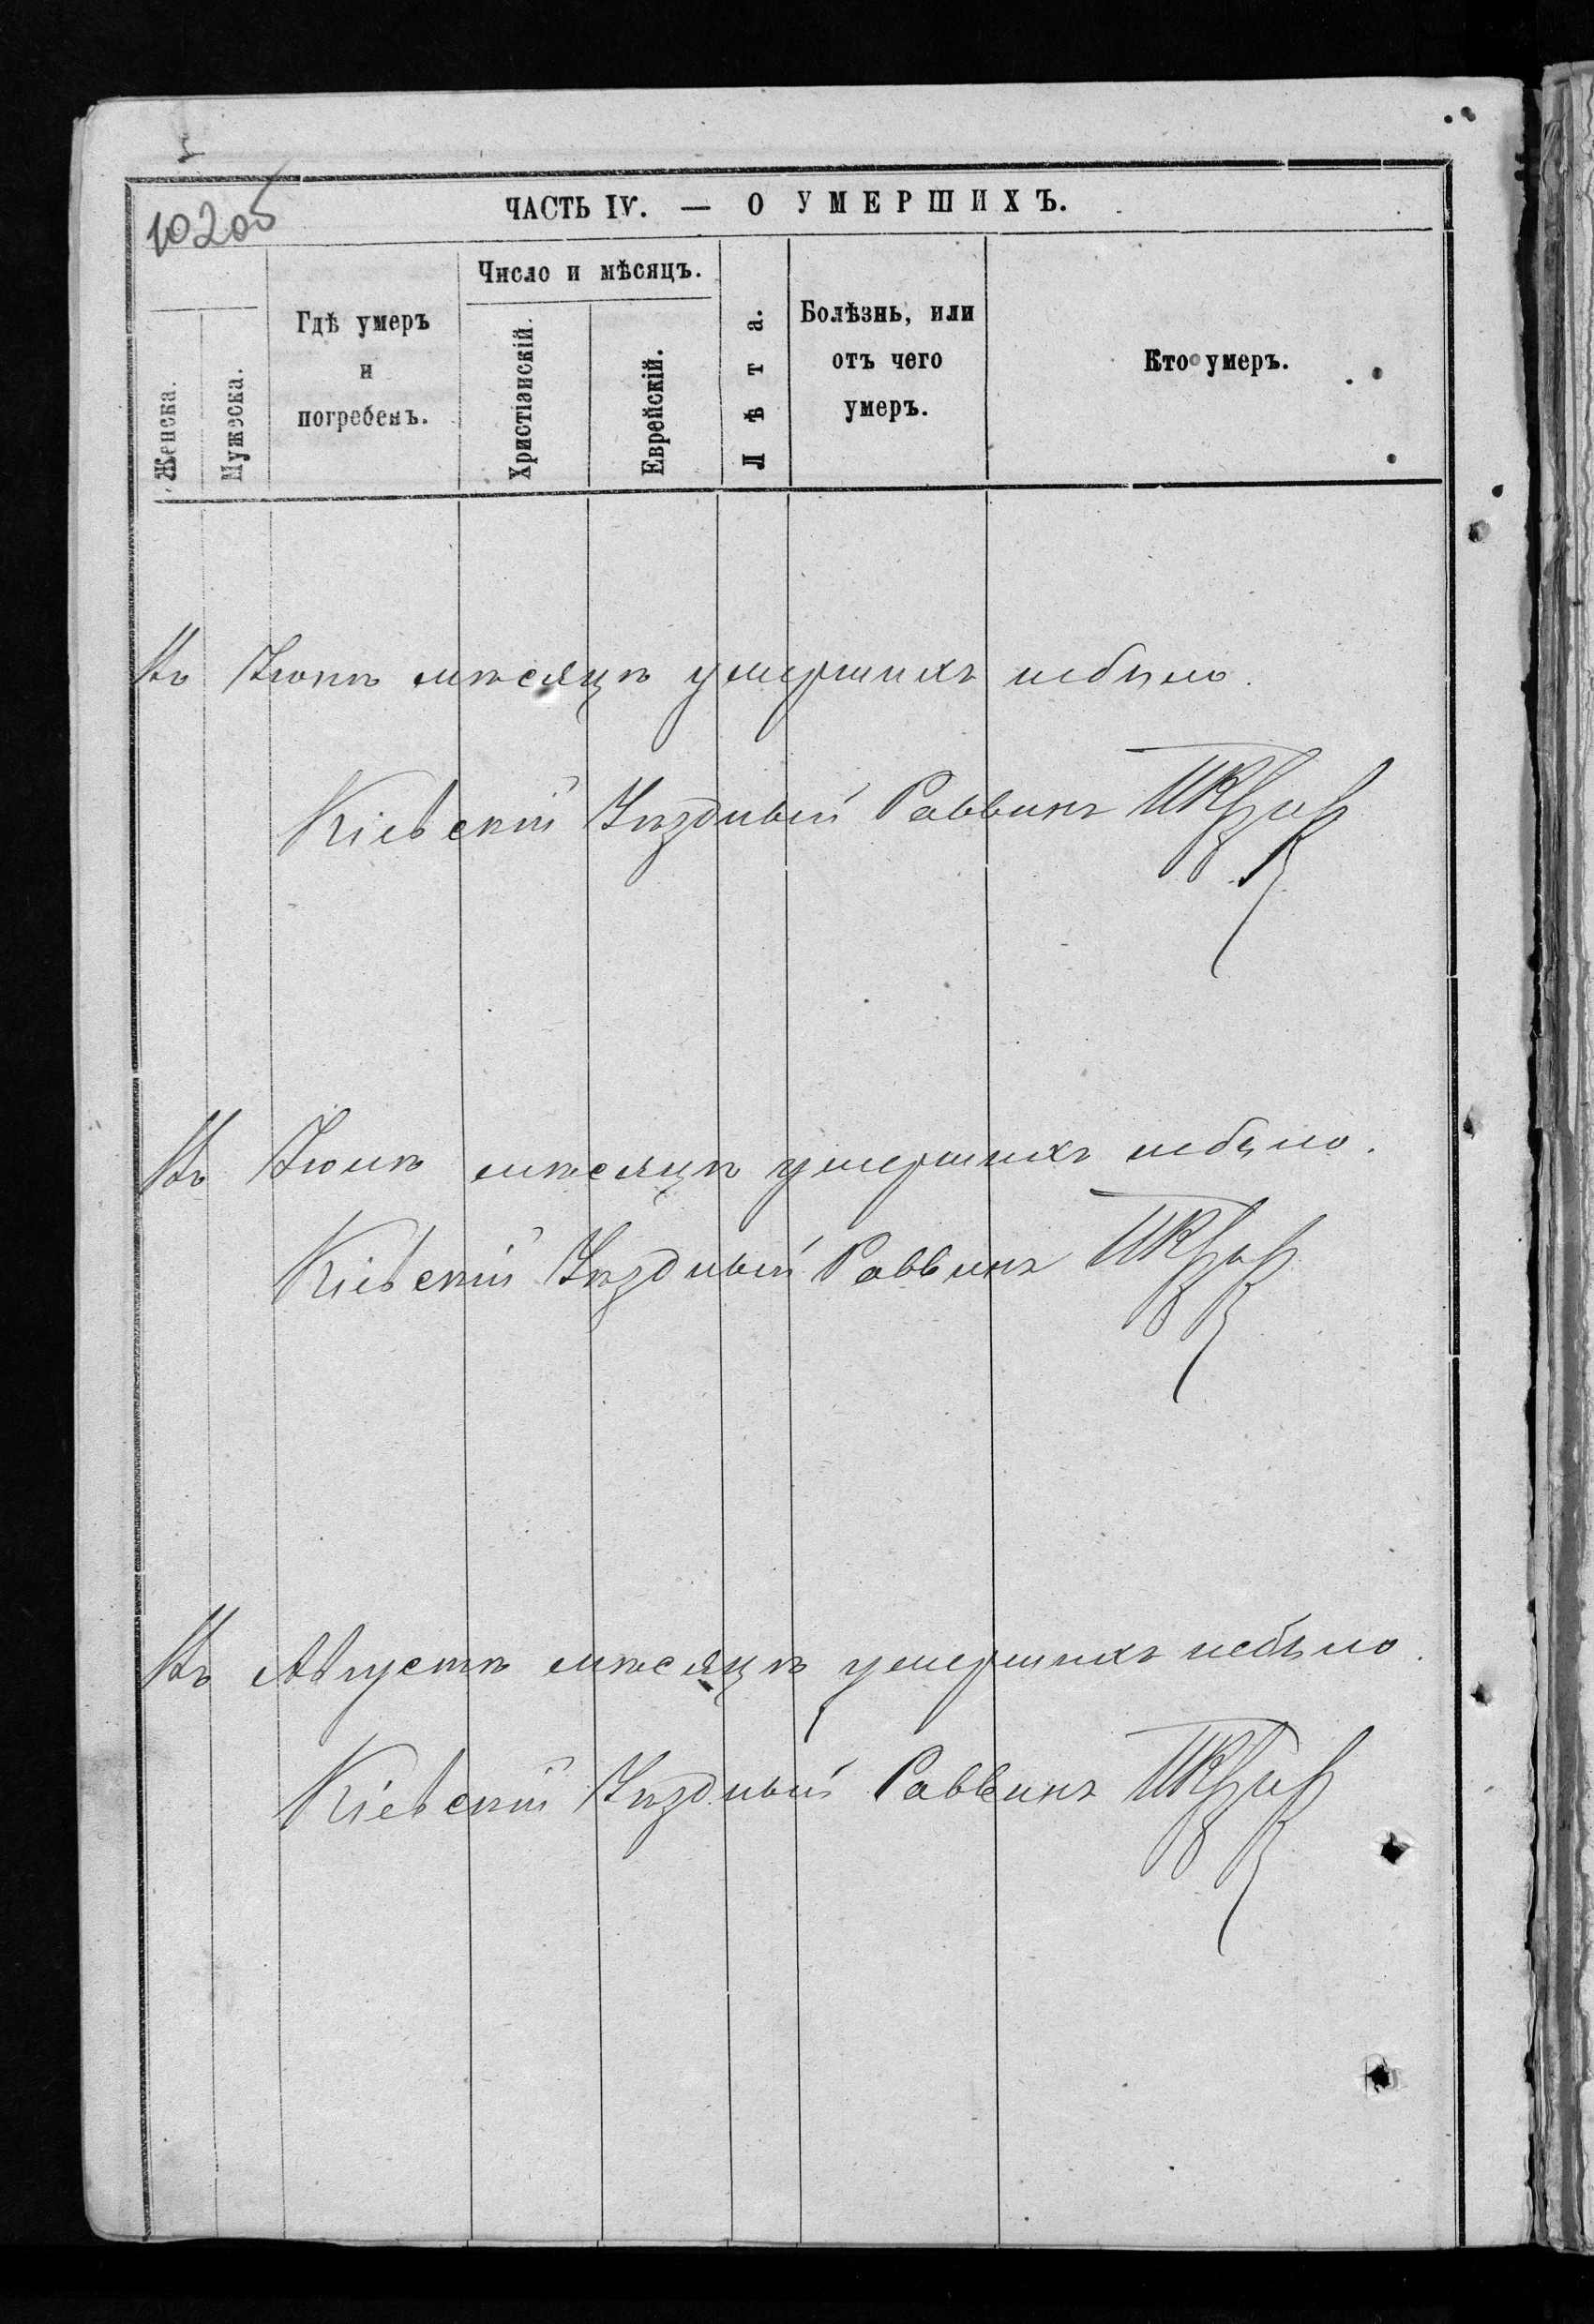 10205
ЧАСТЬ IV. — О УМЕРШИХЪ.
Женска.
Мужеска.
Гдѣ умеръ
и
погребенъ.
Число и мѣсяцъ.
Христіанскій.
Еврейскій.
Лѣта.
Болѣзнь, или
отъ чего
умеръ.
Кто умеръ.
Въ Іюнѣ мѣсяцѣ умершихъ небыло.
Кіевскій Уѣздный Раввинъ
Въ Іюлѣ мѣсяцѣ умершихъ небыло.
Кіевскій Уѣздный Раввинъ
Въ Августѣ мѣсяцѣ умершихъ небыло.
Кіевскій Уѣздный Раввинъ